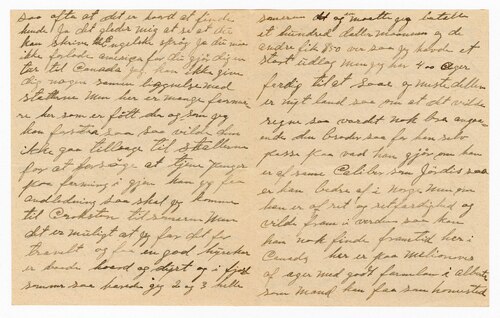 saa ofta at det er haard at finde
hinde Ja det gleder mig at se at du
kan skrive the Engelske sprog Ja du maa
ikke forlade amerega for du gjør dig en
tur til Canada jeg kan ikke give
dig nogen samen liggnelse med
statterne Men her er mange farmer
re her som er føtt der og som jeg
kan forstaa saa vilde dem
ikke gaa tilbage til staterne
for at forsøge at tjene penger
paa farming i gjen kan jeg faa
andledning saa skal jeg komme
til Crokston til somern Men
det er muligt at jeg faar det for
travelt og faa en god
er baade haard og dyrt og i fjord
sommer saa havde jeg 2 og 3 helle
somern det og maatte jeg betalle
et hundred daller maanen og de
andre fik 80 ver saa jeg havde et
stort udlag men jeg har 400 Ager
ferdig til at saae og meste dellen
er nyt land saa om at det vilde
regne saa vardt nok bra angaa
ende din broder saa faar han selv
passe paa vad han gjør om han
er af same Caliber som
er han bedre af i Norge Men om
han er af ret og retferdighed og
vilde fram i verden saa kan
han nok finde framtid her i
Canada her er paa Melionver
af ager med godt farmlan i Alberta
som Mand kan faa som homested